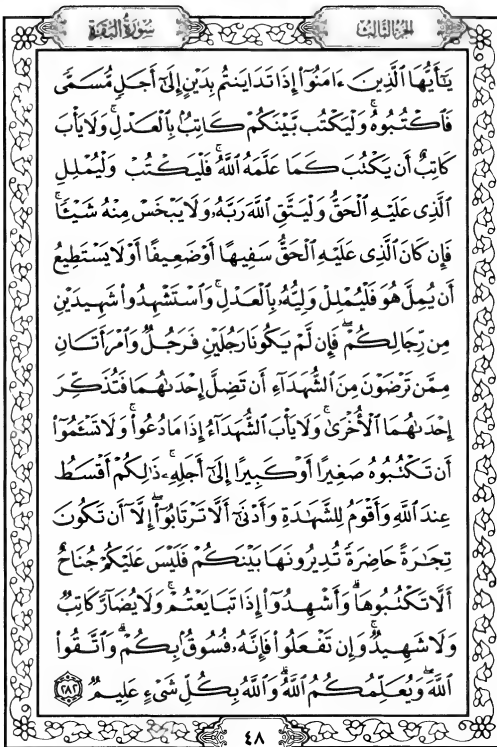 سُورَةُ البَقَرَةِ
الجزء الثالث
يَـٰٓأَيُّهَا ٱلَّذِينَ ءَامَنُوٓا۟ إِذَا تَدَايَنتُم بِدَيْنٍ إِلَىٰٓ أَجَلٍ مُّسَمًّى
فَٱكْتُبُوهُ ۚ وَلْيَكْتُب بَّيْنَكُمْ كَاتِبٌۢ بِٱلْعَدْلِ ۚ وَلَا يَأْبَ
كَاتِبٌ أَن يَكْتُبَ كَمَا عَلَّمَهُ ٱللَّهُ ۚ فَلْيَكْتُبْ وَلْيُمْلِلِ
ٱلَّذِى عَلَيْهِ ٱلْحَقُّ وَلْيَتَّقِ ٱللَّهَ رَبَّهُۥ وَلَا يَبْخَسْ مِنْهُ شَيْـًٔا ۚ
فَإِن كَانَ ٱلَّذِى عَلَيْهِ ٱلْحَقُّ سَفِيهًا أَوْ ضَعِيفًا أَوْ لَا يَسْتَطِيعُ
أَن يُمِلَّ هُوَ فَلْيُمْلِلْ وَلِيُّهُۥ بِٱلْعَدْلِ ۚ وَٱسْتَشْهِدُوا۟ شَهِيدَيْنِ
مِن رِّجَالِكُمْ ۖ فَإِن لَّمْ يَكُونَا رَجُلَيْنِ فَرَجُلٌ وَٱمْرَأَتَانِ
مِمَّن تَرْضَوْنَ مِنَ ٱلشُّهَدَآءِ أَن تَضِلَّ إِحْدَىٰهُمَا فَتُذَكِّرَ
إِحْدَىٰهُمَا ٱلْأُخْرَىٰ ۚ وَلَا يَأْبَ ٱلشُّهَدَآءُ إِذَا مَا دُعُوا۟ ۚ وَلَا تَسْـَٔمُوٓا۟
أَن تَكْتُبُوهُ صَغِيرًا أَوْ كَبِيرًا إِلَىٰٓ أَجَلِهِۦ ۚ ذَٰلِكُمْ أَقْسَطُ
عِندَ ٱللَّهِ وَأَقْوَمُ لِلشَّهَـٰدَةِ وَأَدْنَىٰٓ أَلَّا تَرْتَابُوٓا۟ ۖ إِلَّآ أَن تَكُونَ
تِجَـٰرَةً حَاضِرَةً تُدِيرُونَهَا بَيْنَكُمْ فَلَيْسَ عَلَيْكُمْ جُنَاحٌ
أَلَّا تَكْتُبُوهَا ۗ وَأَشْهِدُوٓا۟ إِذَا تَبَايَعْتُمْ ۚ وَلَا يُضَآرَّ كَاتِبٌ
وَلَا شَهِيدٌ ۚ وَإِن تَفْعَلُوا۟ فَإِنَّهُۥ فُسُوقٌۢ بِكُمْ ۗ وَٱتَّقُوا۟
ٱللَّهَ ۖ وَيُعَلِّمُكُمُ ٱللَّهُ ۗ وَٱللَّهُ بِكُلِّ شَىْءٍ عَلِيمٌ ٢٨٢
٤٨